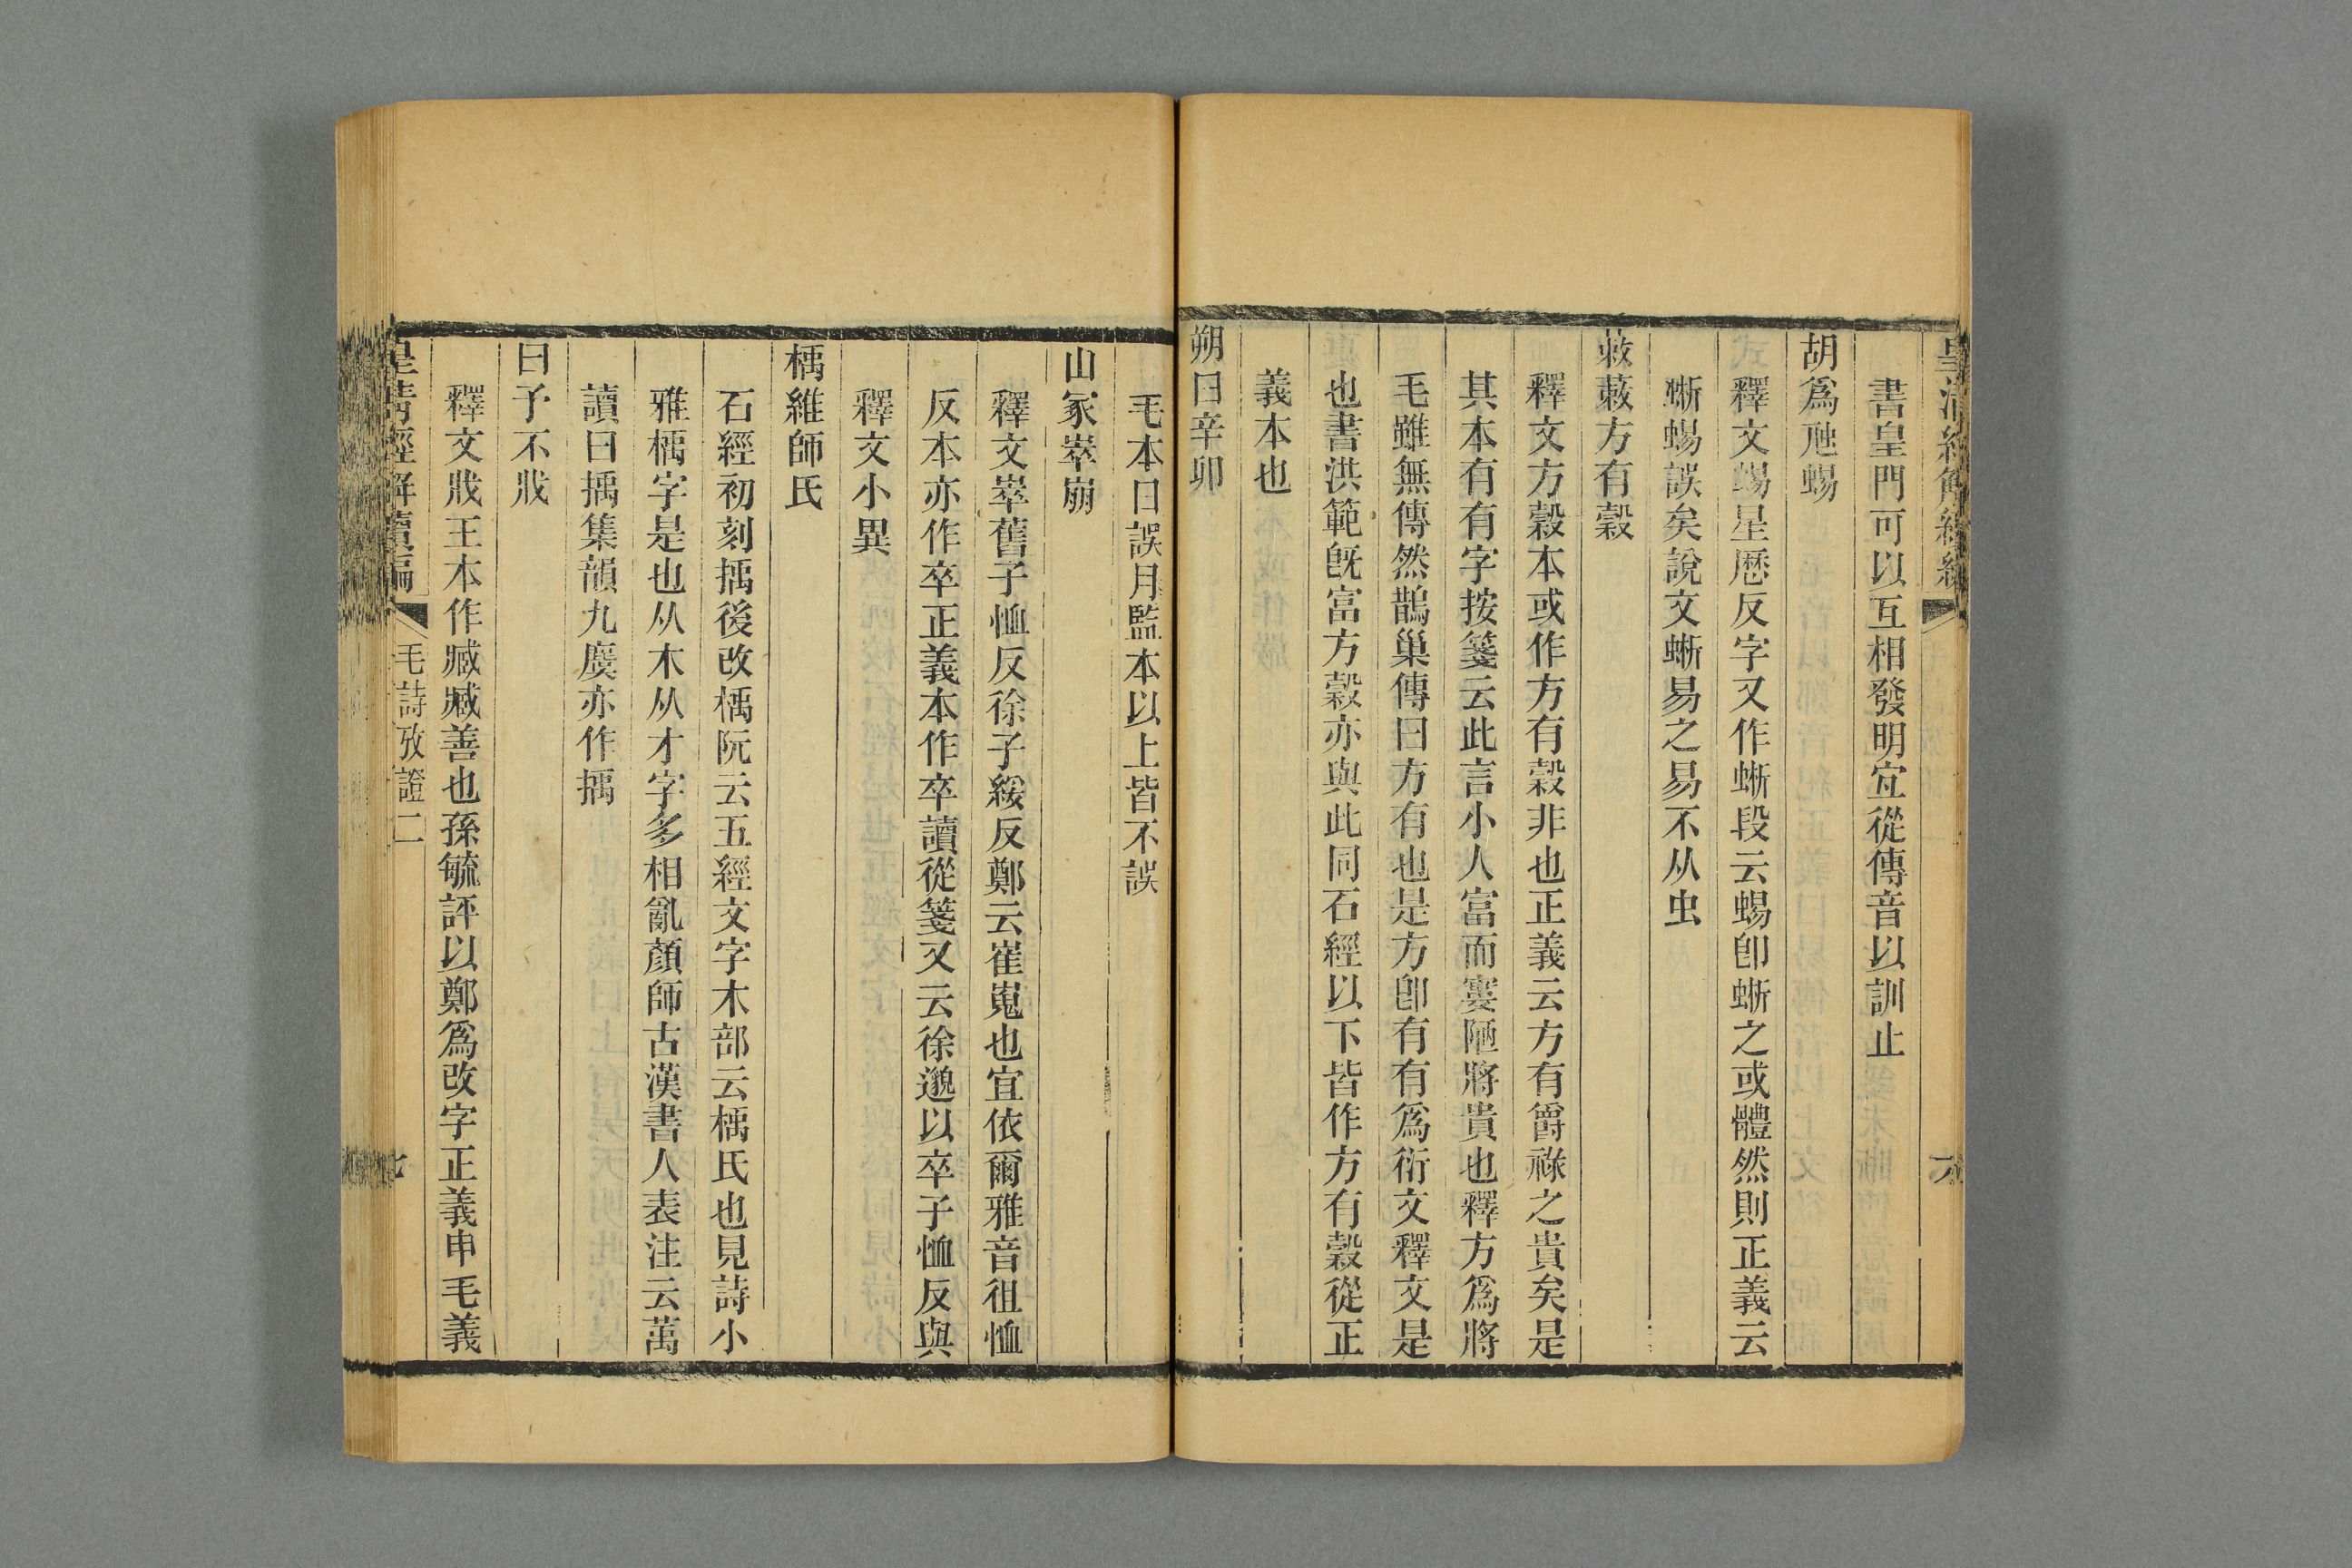 書皇門可以互相發明宐從傳音以訓止
胡爲虺蜴
釋文蜴星厯反字又作蜥段云蜴卽蜥之或體然則正義云
蜥蜴誤矣說文蜥易之易不从虫
蔌蔌方有穀
釋文方穀本或作方有穀非也正義云方有爵祿之貴矣是
其本有有字按箋云此言小人富而窶陋將貴也釋方爲將
毛雖無傳然鵲巢傳曰方有也是方卽有有爲衍文釋文是
也書洪範旣富方穀亦與此同石經以下皆作方有穀從正
義本也
朔日辛卯
毛本日誤月監本以上皆不誤
山冢崒崩
釋文崒舊子恤反徐子綏反鄭云崔嵬也宜依爾雅音徂恤
反本亦作卒正義本作卒讀從箋又云徐邈以卒子恤反與
釋文小異
楀維師氏
石經初刻㨵後改楀阮云五經文字木部云楀氏也見詩小
雅楀字是也从木从才字多相亂顏師古漢書人表注云萬
讀曰㨵集韻九麌亦作㨵
曰予不戕
釋文戕王本作臧臧善也孫毓評以鄭爲改字正義申毛義
皇清經解續編
毛詩攷證二
七